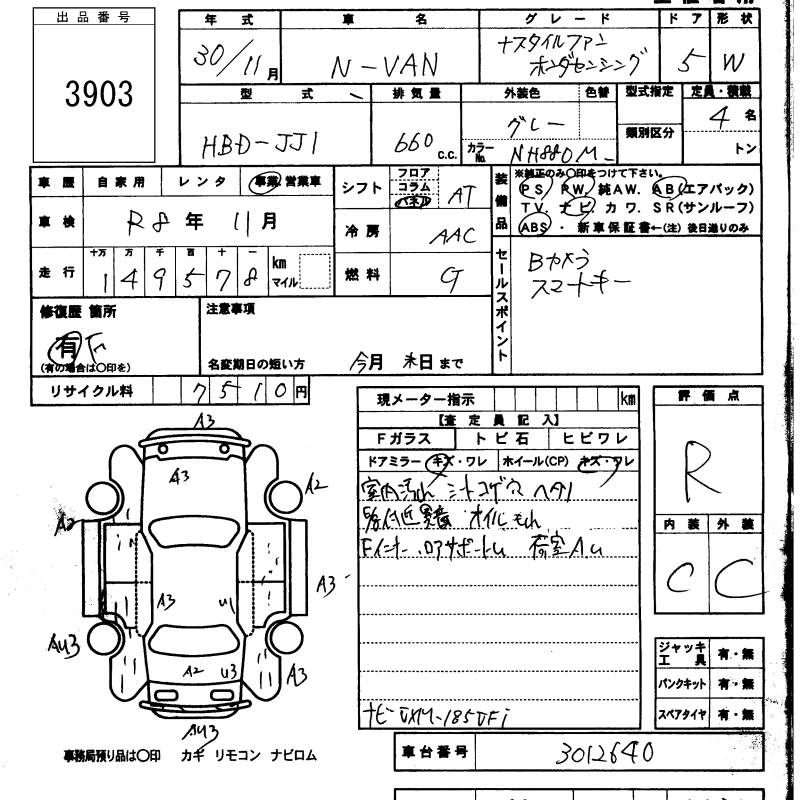 出品番号
3903
年式 車名 グレード ドア 形状
30/11月 N-VAN +スタイルファン ホンダセンシング 5 W
型式 排気量 外装色 色替 型式指定 定員・積載
HBD-JJ1 660 c.c. グレー 類別区分 4名
カラーNo. NH880M トン
車歴 自家用 レンタ 事業 営業車
シフト フロア コラム パネル AT
装備品 ※純正のみ○印をつけて下さい。
PS PW 純AW. AB(エアバッグ)
TV. ナビ. カワ. SR(サンルーフ)
ABS ・ 新車保証書←(注)後日送りのみ
車検 R8年 11月
冷房 AAC
走行 十万 万 千 百 十 一
149578 km マイル
燃料 G
セールスポイント
Bカメラ
スマートキー
修復歴 箇所
有
(有の場合は○印を)
注意事項
名変期日の短い方 今月 末日まで
リサイクル料 7510円
現メーター指示 km
【査定員記入】
Fガラス トビ石 ヒビワレ
ドアミラー キズ・ワレ ホイール(CP) キズ・ワレ
室内汚れ シートコゲ穴 ヘタリ
オイルモレ
荷室AU
評価点
R
内装 外装
C C
A3
A3
A2
A2
A3
A3
U1
AU3
A2
U3
A3
AU3
ジャッキ工具 有・無
パンクキット 有・無
スペアタイヤ 有・無
事務局預り品は○印 カギ リモコン ナビロム
車台番号 3012640